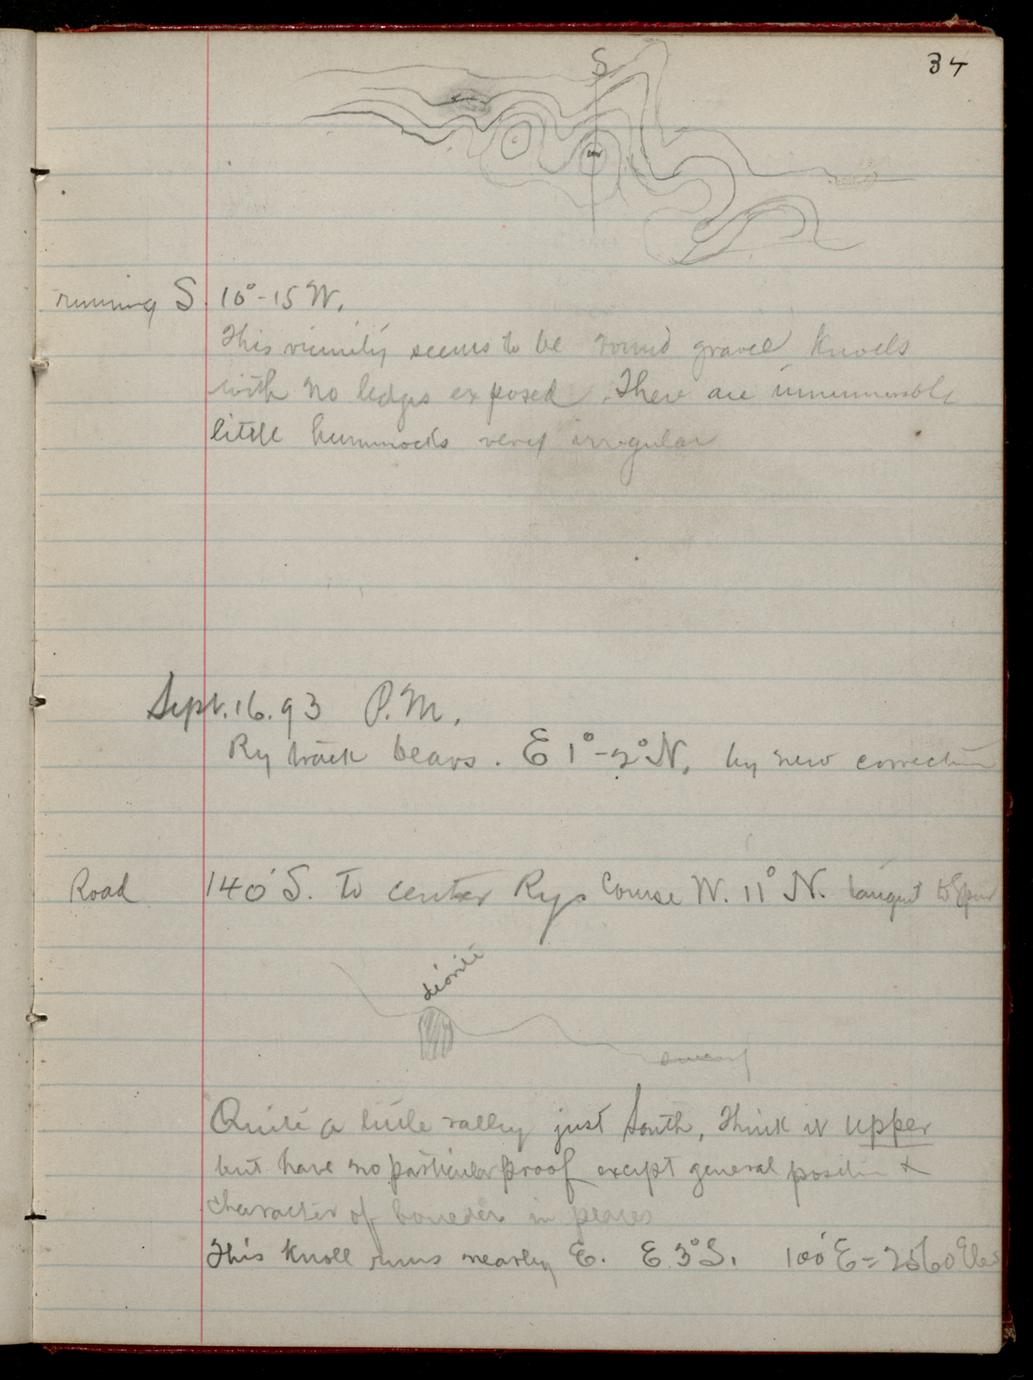 34
S
running S. 10°-15 W.
This vicinity seems to be round gravel knolls
with no ledges exposed. There are innumerable
little hummocks very irregular
Sept. 16. 93 P.M.
Ry track bears. E 1°-2° N. by new correction
Road 140' S. to center Ry. Course W. 11° N. tangent to Spur
diorite
swamp
Quite a little valley just South, think it upper
but have no particular proof except general position &
character of boulders in places
This knoll runs nearly E. E 3° S. 100' E = 2560 Elev